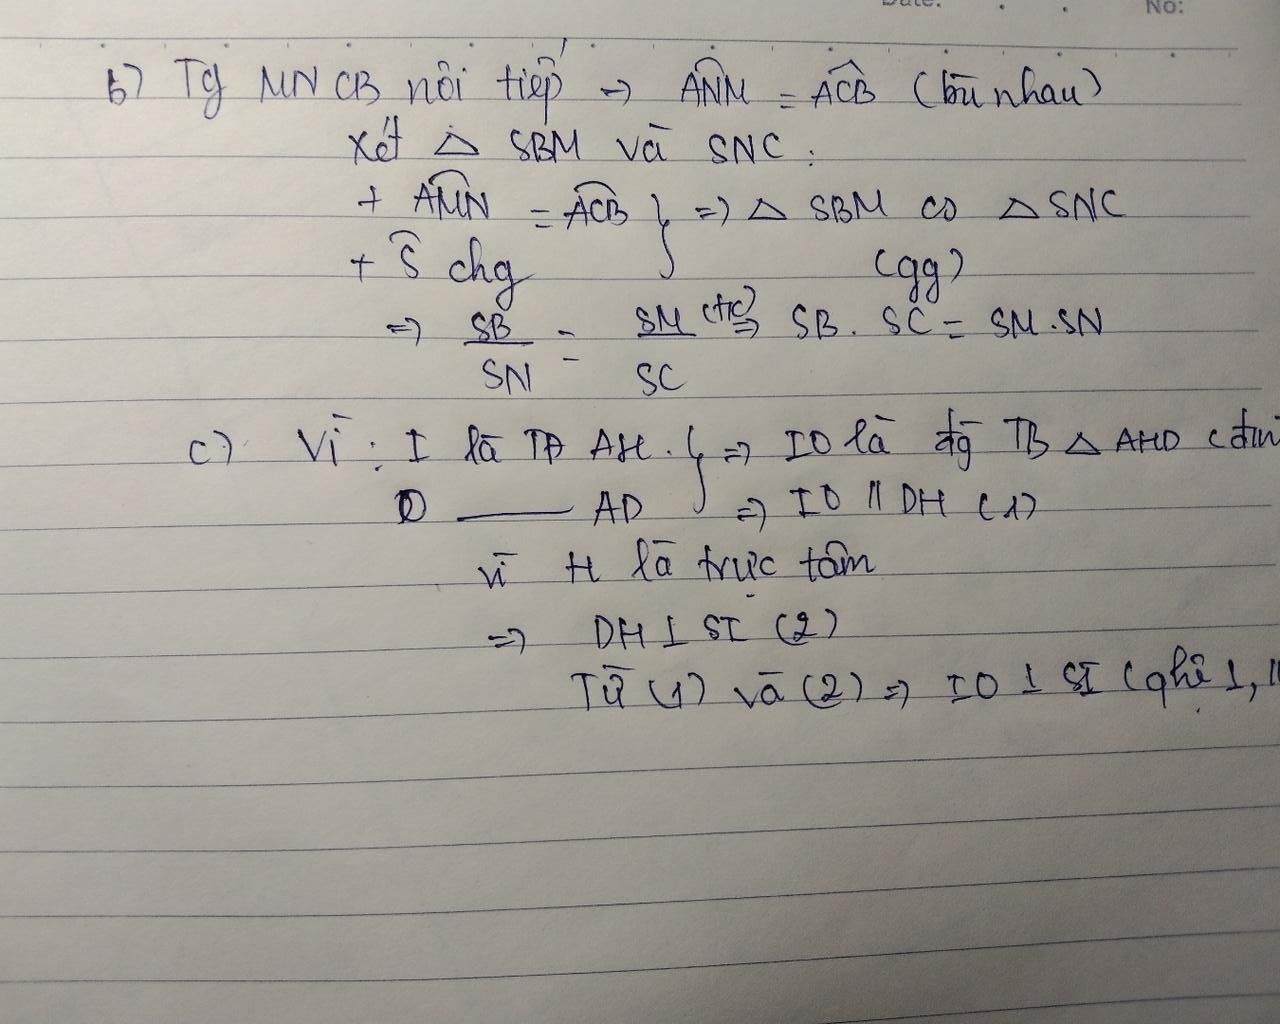 Date:
No:
b) Tg MNCB nội tiếp => ANM = ACB (bù nhau)
Xét △ SBM và SNC :
+ AMN = ACB } => △ SBM ∽ △ SNC
+ S chg (gg)
=> SB/SN = SM/SC (tc) => SB . SC = SM . SN
c) Vì : I là TĐ AH . } => IO là đg TB △ AHD
O —— AD => IO // DH (1)
vì H là trực tâm
=> DH ⊥ SI (2)
Từ (1) và (2) => IO ⊥ SI (qhệ ⊥, //